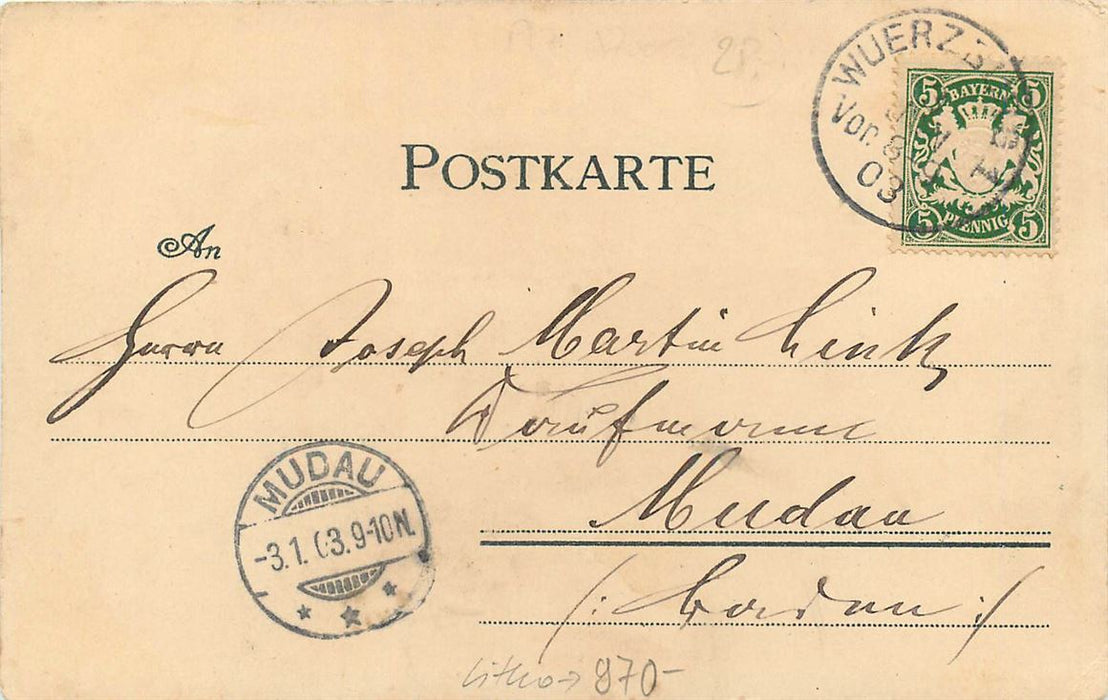 2P.-
WUERZB
Vor. 8-9
03
5 BAYERN 5
5 PFENNIG 5
POSTKARTE
An
Herrn Joseph Martin Link
Kaufmann
Mudau
(: Baden :)
MUDAU
-3.1.03.9-10N.
Litho → 970-